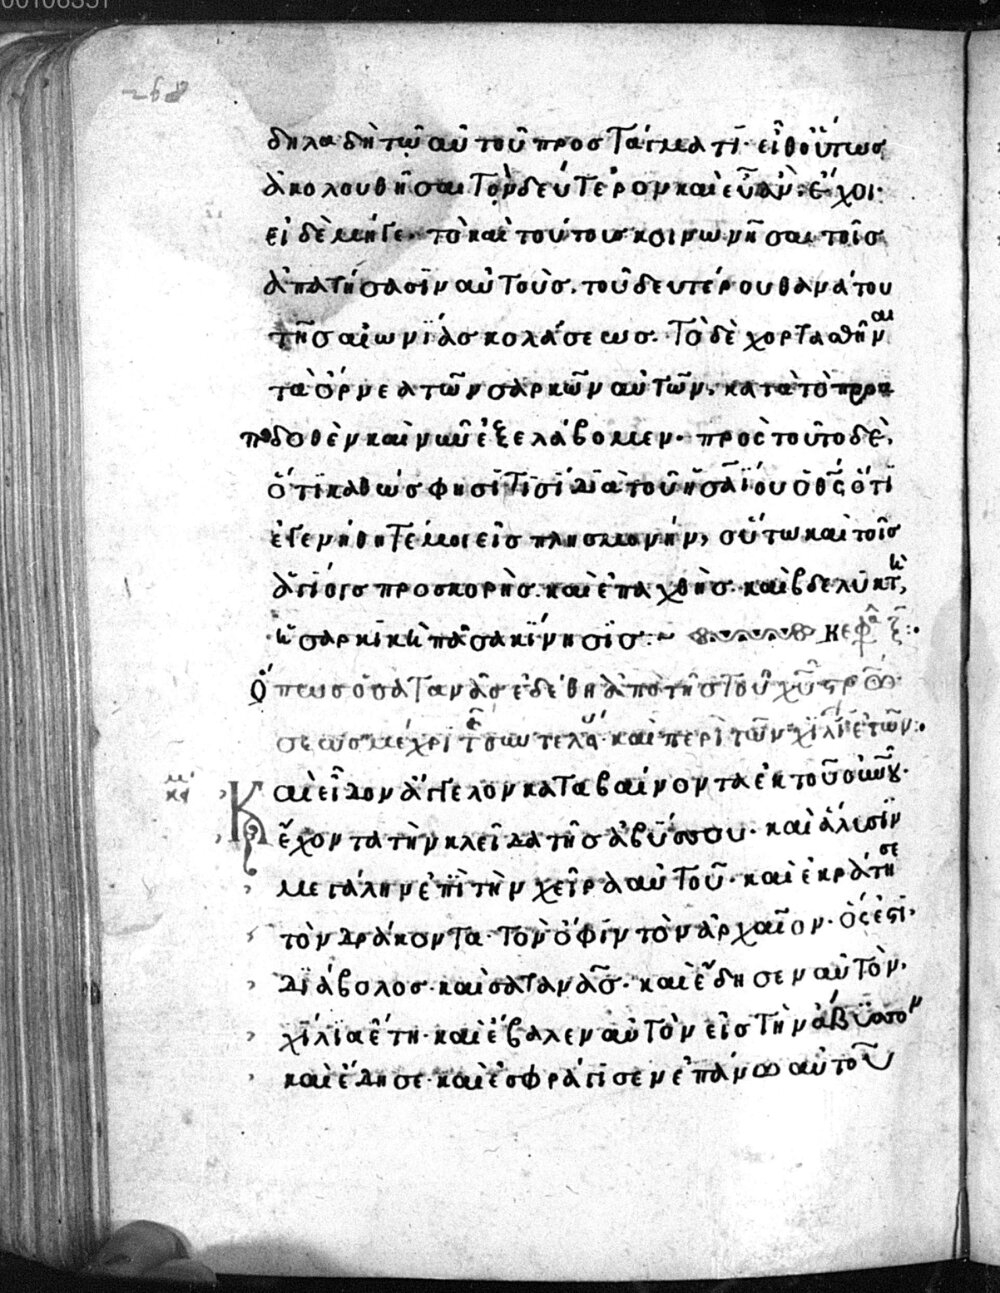 δηλαδὴ τῶ αὐτοῦ προστάγματι· εἴθ' οὕτως
ἀκολουθῆσαι τὸν δεύτερον καὶ εὖ ἂν ἔχοι·
εἰ δὲ μήγε τὸ καὶ τούτους κοινωνῆσαι τοῖς
ἀπατήσασιν αὐτοὺς. τοῦ δευτέρου θανάτου
τῆς αἰωνίας κολάσεως. τὸ δὲ χορτασθῆναι
τὰ ὄρνεα τῶν σαρκῶν αὐτῶν. κατὰ τὸ προα
ποδοθὲν καὶ νῦν ἐξελάβομεν· πρὸς τοῦτο δὲ,
ὅτι καθὼς φησί τισι διὰ τοῦ ἡσαΐου ὁ θς ὅτι
ἐγενήθητέ μοι εἰς πλησμονήν, οὕτω καὶ τοῖς
ἁγίοις προσκορὴς. καὶ ἐπαχθὴς. καὶ βδελυκτὴ,
ἡ σαρκικὴ πᾶσα κίνησις:~ κεφ ξ:·
Ὅπως ὁ σατανᾶς ἐδέθη ἀπὸ τῆς τοῦ χυ παρου
σεως μέχρι τῆς συντελ καὶ περὶ τῶν χιλίων ἐτῶν:·
Καὶ εἶδον ἄγγελον καταβαίνοντα ἐκ τοῦ οὐνου·
ἔχοντα τὴν κλεῖδα τῆς ἀβύσσου· καὶ ἅλυσιν
μεγάλην ἐπὶ τὴν χεῖρα αὐτοῦ· καὶ ἐκράτησε
τὸν δράκοντα· τὸν ὄφιν τὸν ἀρχαῖον· ὅς ἐστι·
διάβολος· καὶ σατανᾶς· καὶ ἔδησεν αὐτὸν.
χίλια ἔτη· καὶ ἔβαλεν αὐτὸν εἰς τὴν ἄβυσσον
καὶ ἔδησε· καὶ ἐσφράγισεν ἐπάνω αὐτοῦ